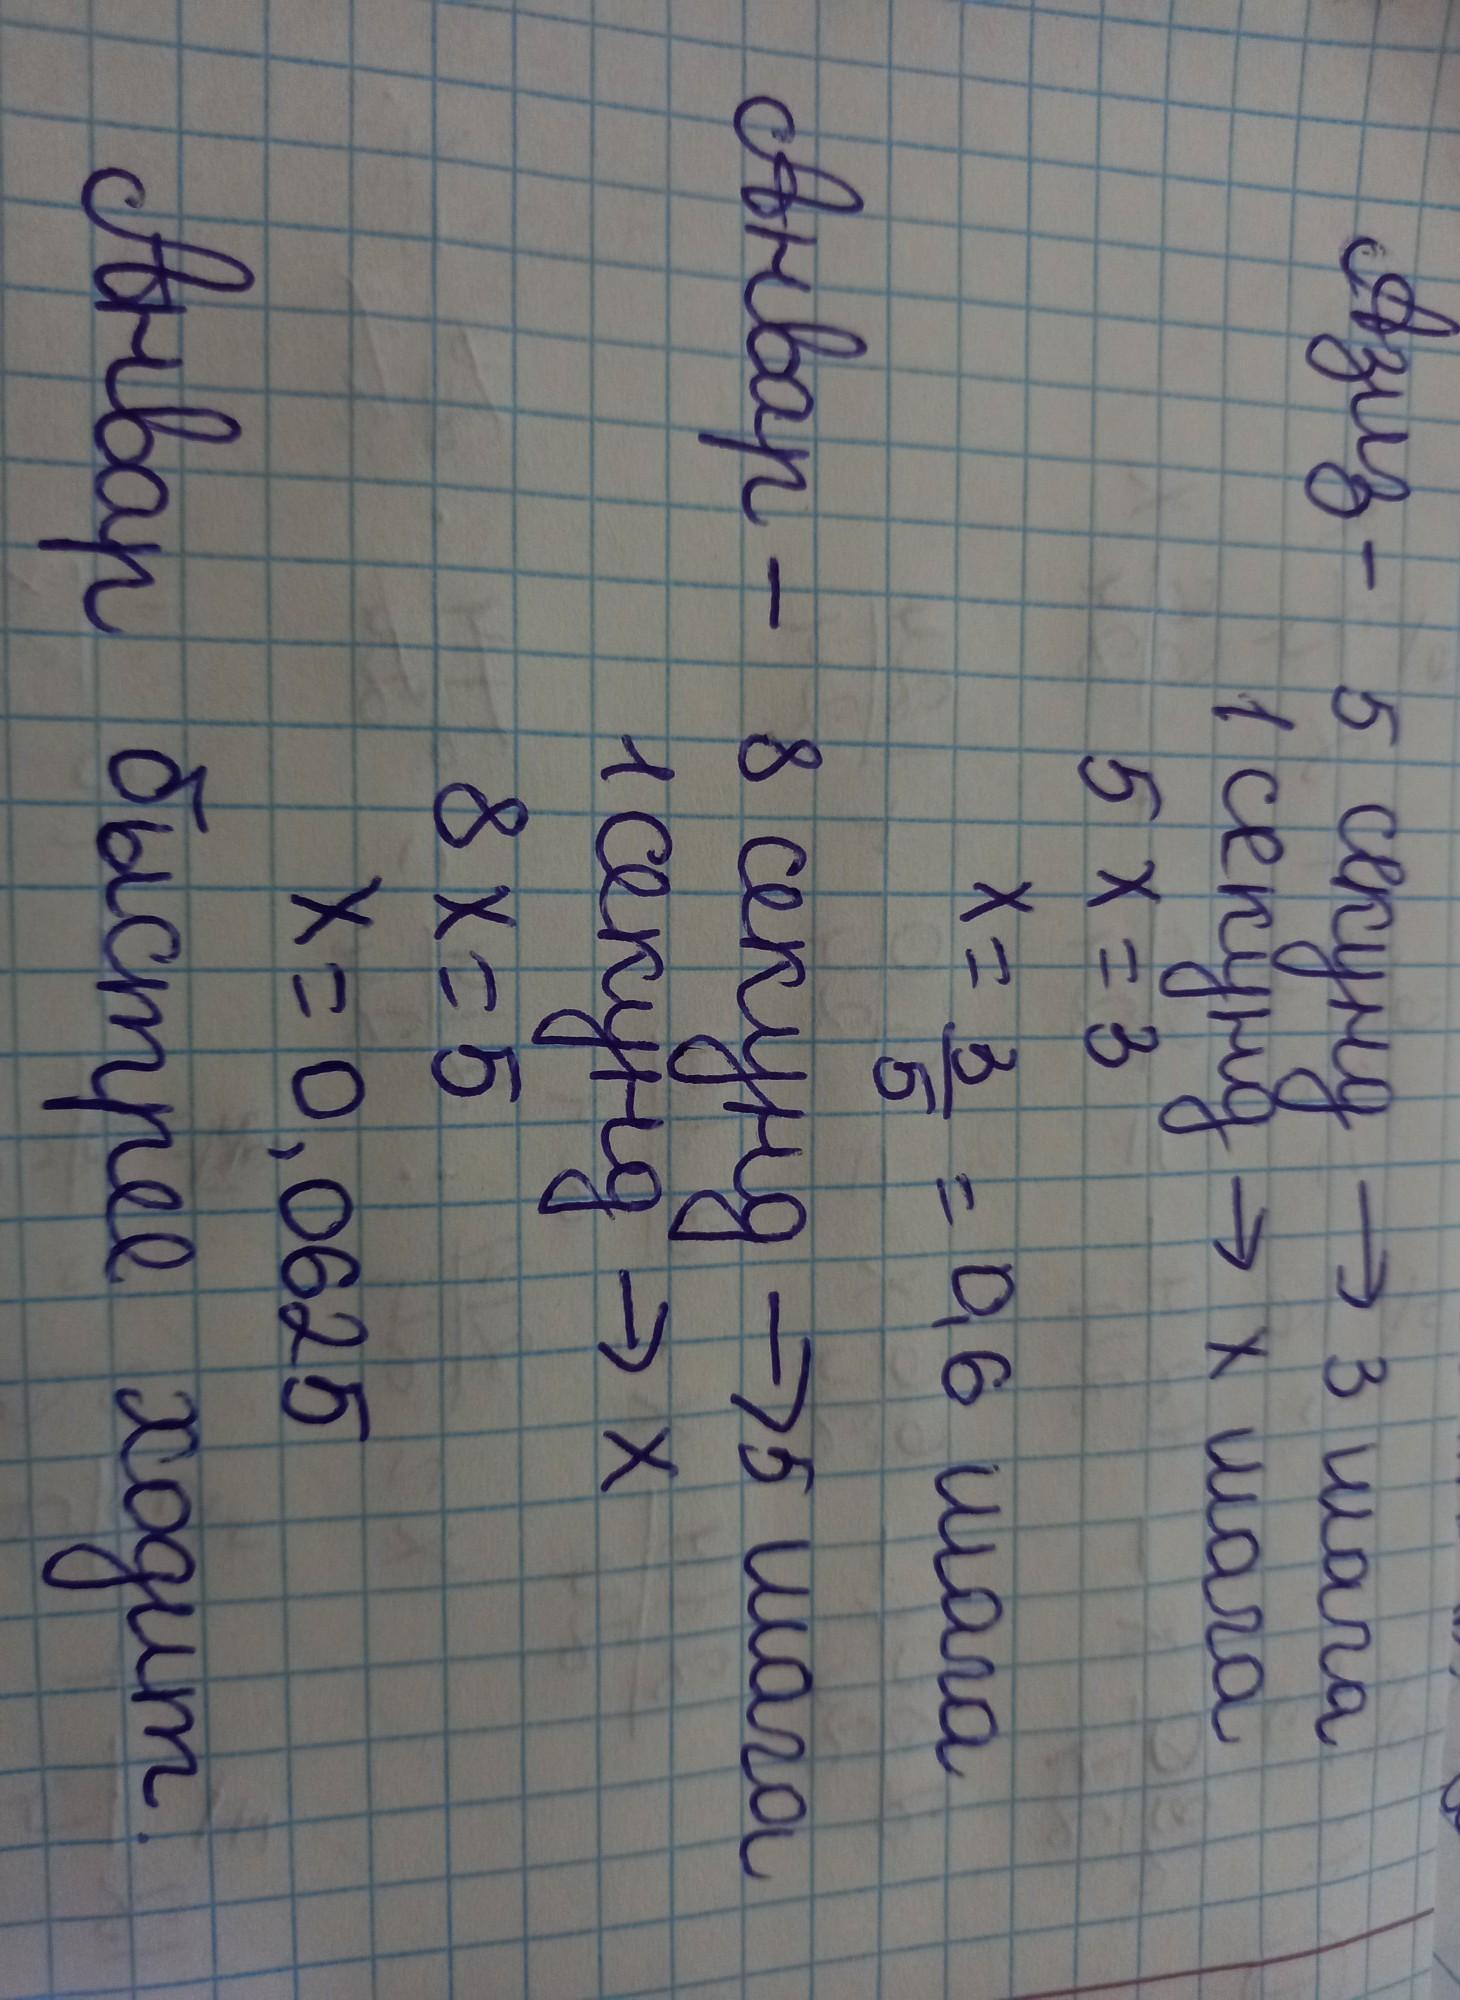 Азиз - 5 секунд → 3 шага
1 секунд → x шага
5 x = 3
x = 3/5 = 0,6 шага
Анвар - 8 секунд → 5 шага
1 секунд → x
8 x = 5
x = 0,0625
Анвар быстрее ходит.